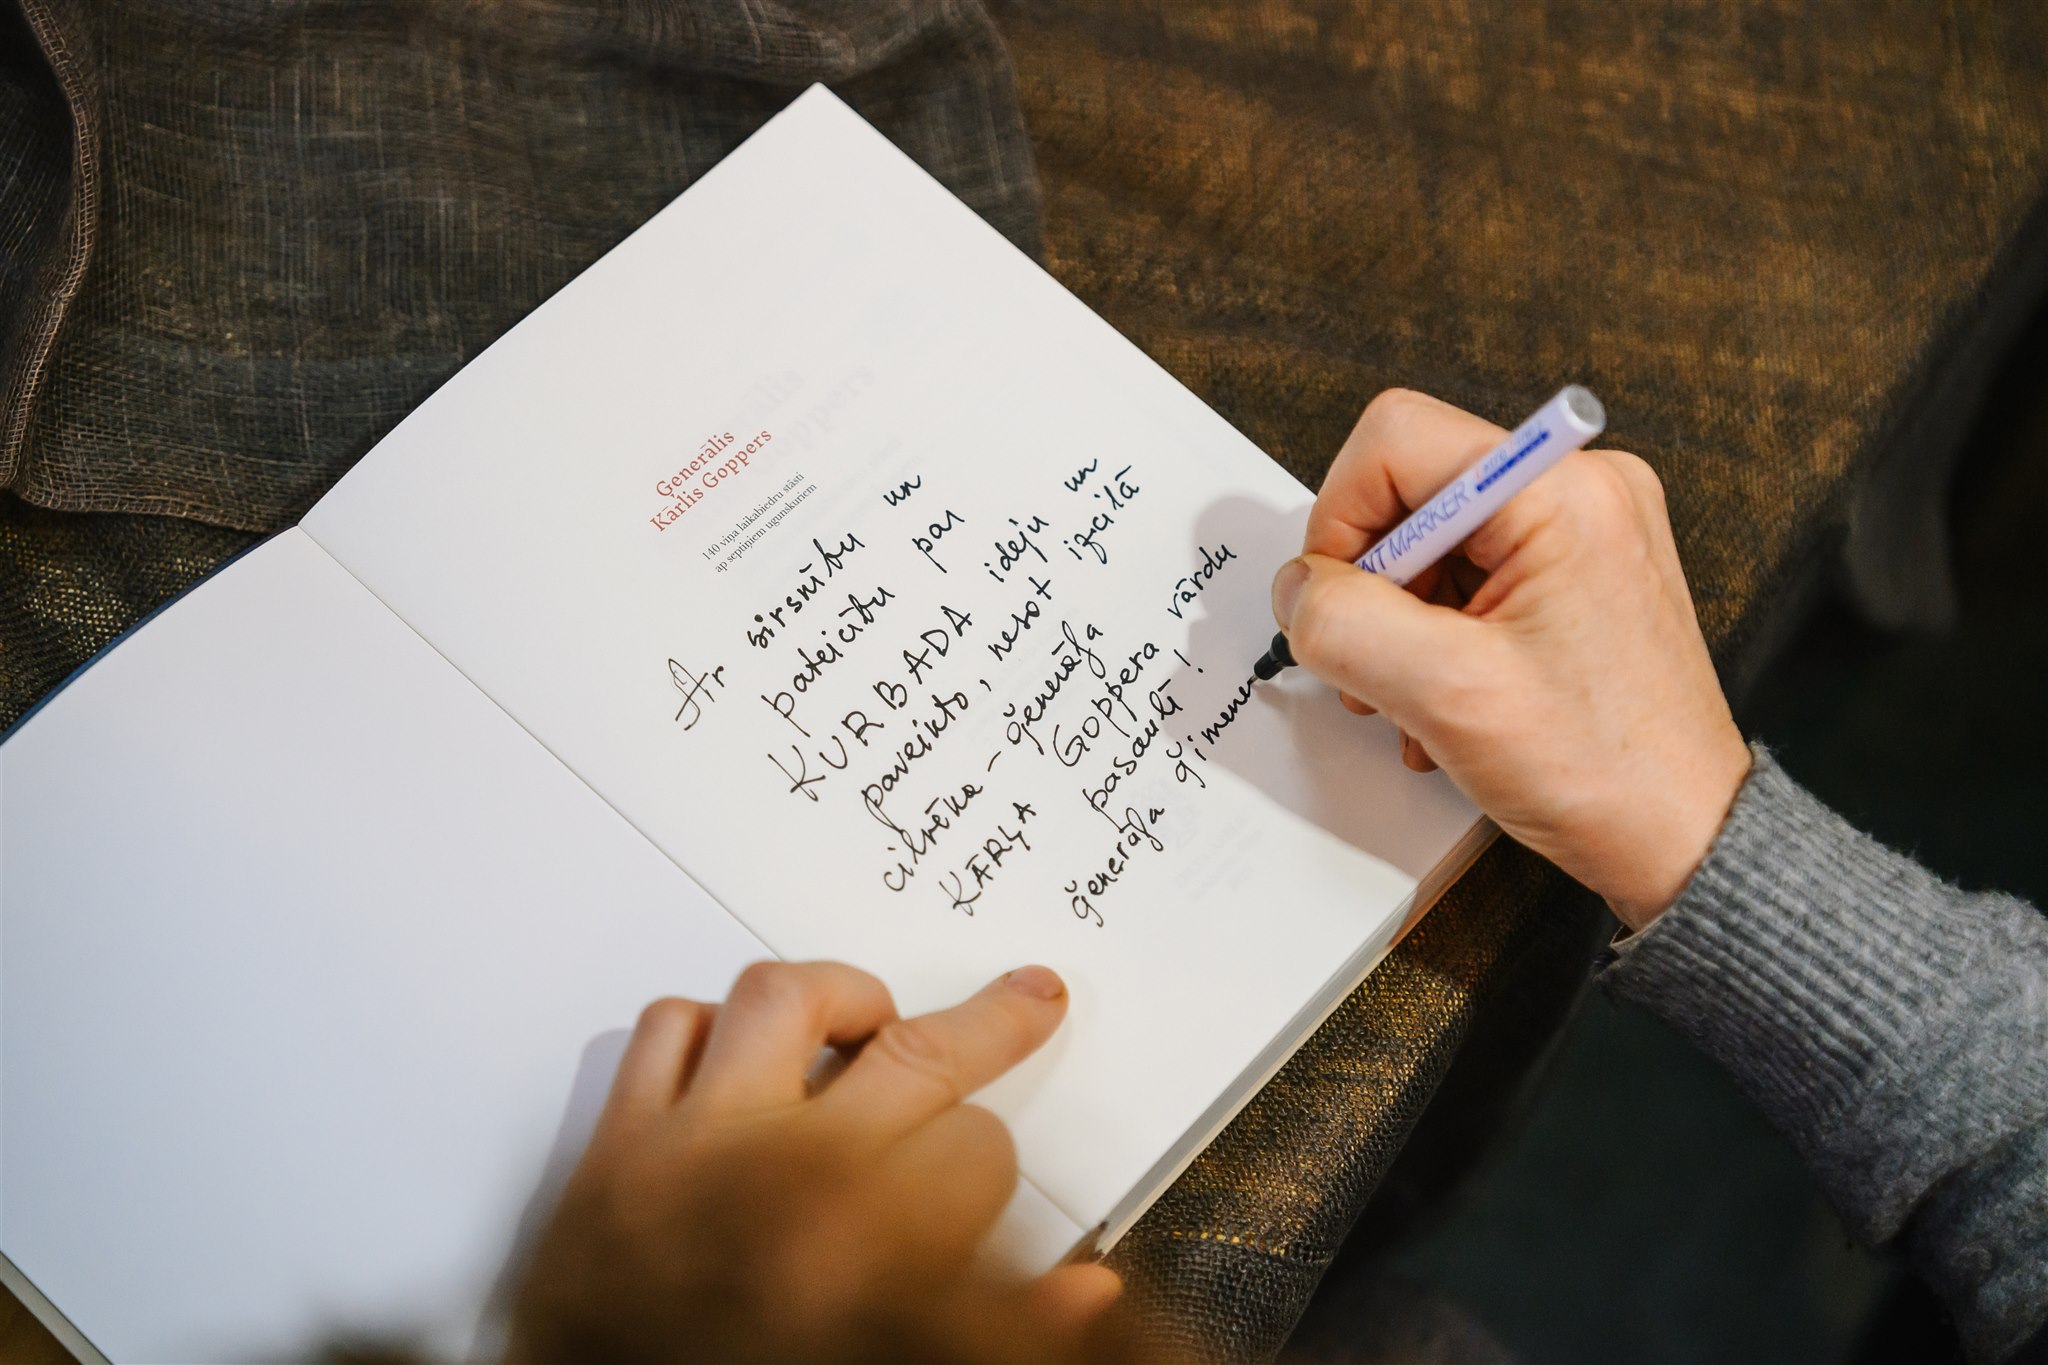 Ģenerālis
Kārlis Goppers
140 viņa laikabiedru stāsti
ap septiņiem ugunskuriem
Ar sirsnību un
pateicību par
KURBADA ideju un
paveikto, nesot izcilā
cilvēka – ģenerāļa
KĀRĻA Goppera vārdu
pasaulē!
ģenerāļa ģimene
NT MARKER